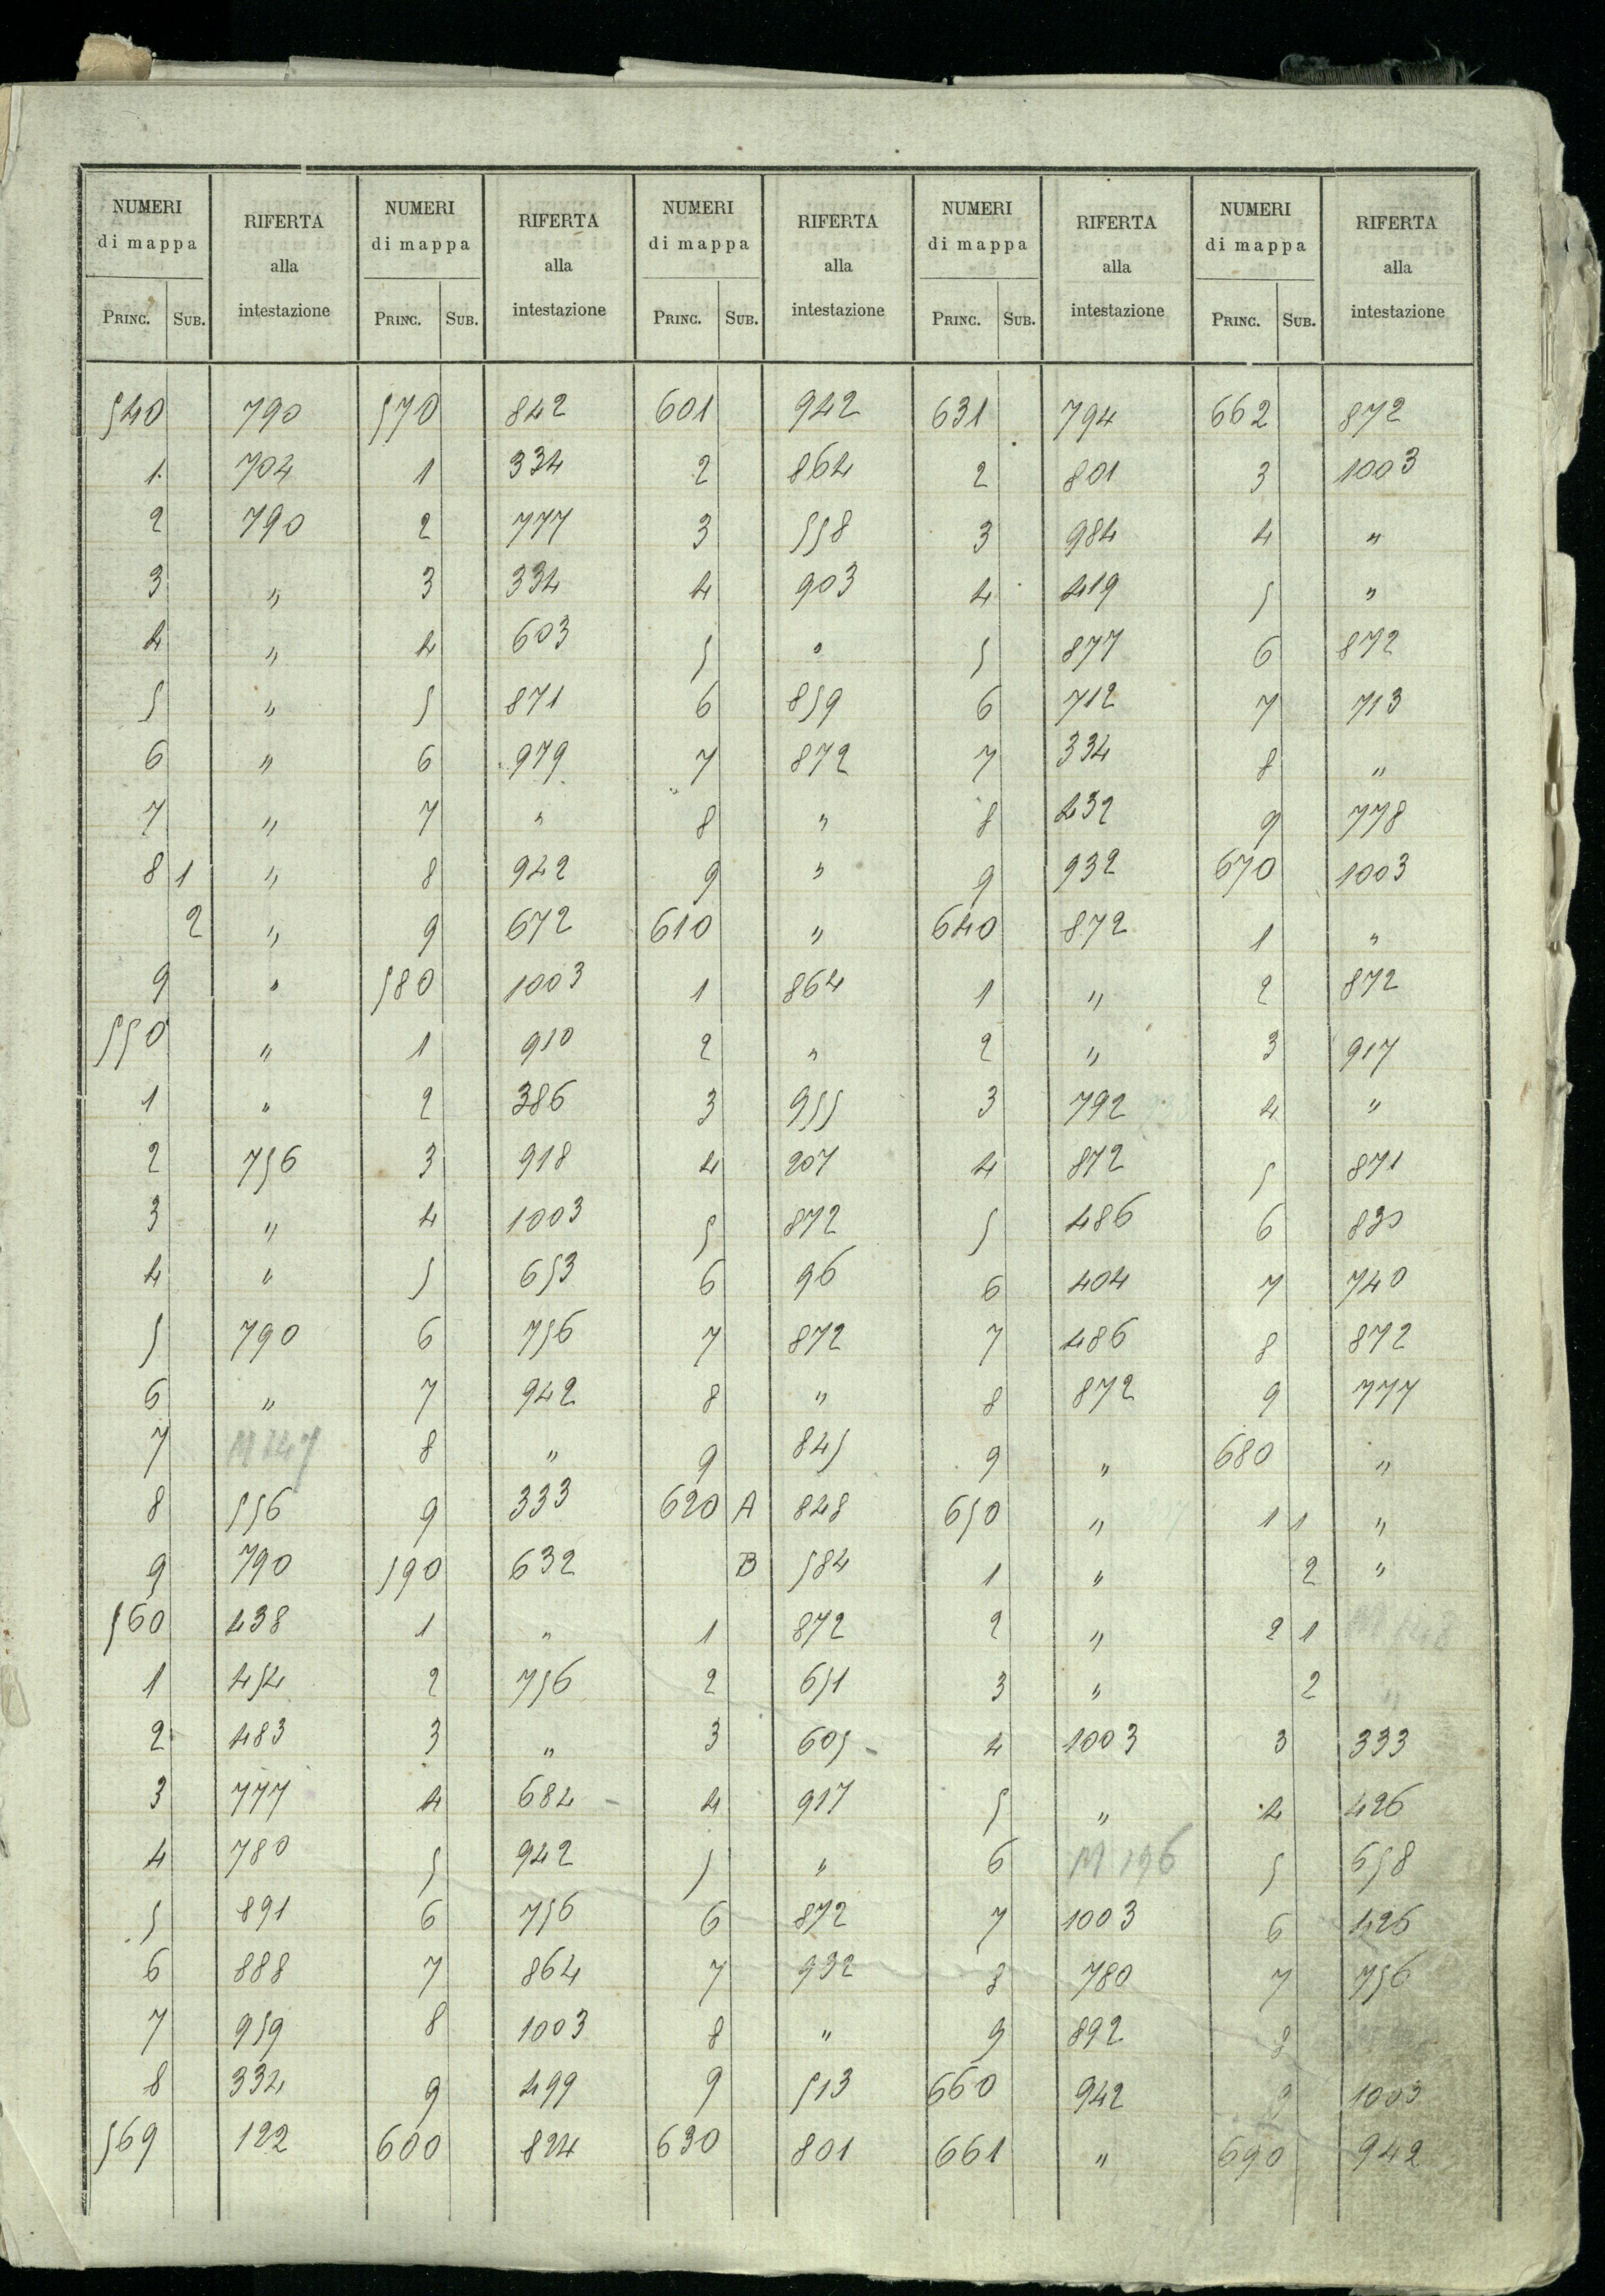 NUMERI di mappa RIFERTA alla intestazione NUMERI di mappa RIFERTA alla intestazione NUMERI di mappa RIFERTA alla intestazione NUMERI di mappa RIFERTA alla intestazione NUMERI di mappa RIFERTA alla intestazione
PRINC. SUB. PRINC. SUB. PRINC. SUB. PRINC. SUB. PRINC. SUB.
540 790 570 842 601 942 631 794 662 872
1 704 1 334 2 864 2 801 3 1003
2 790 2 777 3 558 3 984 4 "
3 " 3 334 4 903 4 419 5 "
4 " 4 603 5 " 5 877 6 872
5 " 5 871 6 859 6 712 7 713
6 " 6 979 7 872 7 334 8 "
7 " 7 " 8 " 8 432 9 778
8 1 " 8 942 9 " 9 932 670 1003
2 " 9 672 610 " 640 872 1 "
9 " 580 1003 1 864 1 " 2 872
550 " 1 910 2 " 2 " 3 917
1 " 2 386 3 955 3 792 4 "
2 756 3 918 4 207 4 872 5 871
3 " 4 1003 5 872 5 486 6 830
4 " 5 653 6 96 6 404 7 740
5 790 6 756 7 872 7 486 8 872
6 " 7 942 8 " 8 872 9 777
7 8 " 9 845 9 " 680 "
8 556 9 333 620 A 848 650 " 1 1 "
9 790 590 632 B 584 1 " 2 "
560 438 1 " 1 872 2 " 2 1
1 454 2 756 2 651 3 " 2 "
2 483 3 " 3 605 4 1003 3 333
3 777 4 684 4 917 5 " 4 426
4 780 5 942 5 " 6 M 196 5 658
5 891 6 756 6 872 7 1003 6 426
6 888 7 864 7 932 8 780 7 756
7 959 8 1003 8 " 9 892 8
8 334 9 499 9 513 660 942 9 1003
569 122 600 824 630 801 661 " 690 942